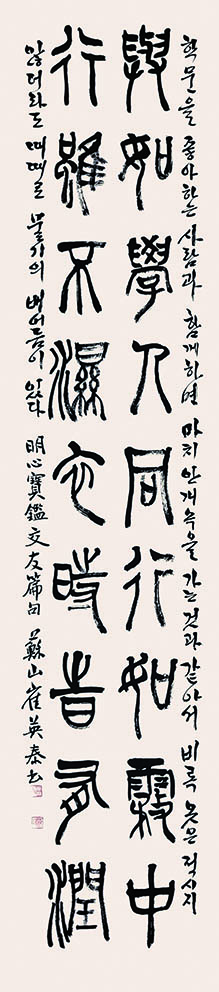 학문을 좋아하는 사람과 함께하면 마치 안개 속을 가는 것과 같아서 비록 옷은 적시지
與如學人同行如霧中
行雖不濕衣時旹有潤
않더라도 때때로 물기의 베어듬이 있다 明心寶鑑交友篇句 蘇山崔英泰書